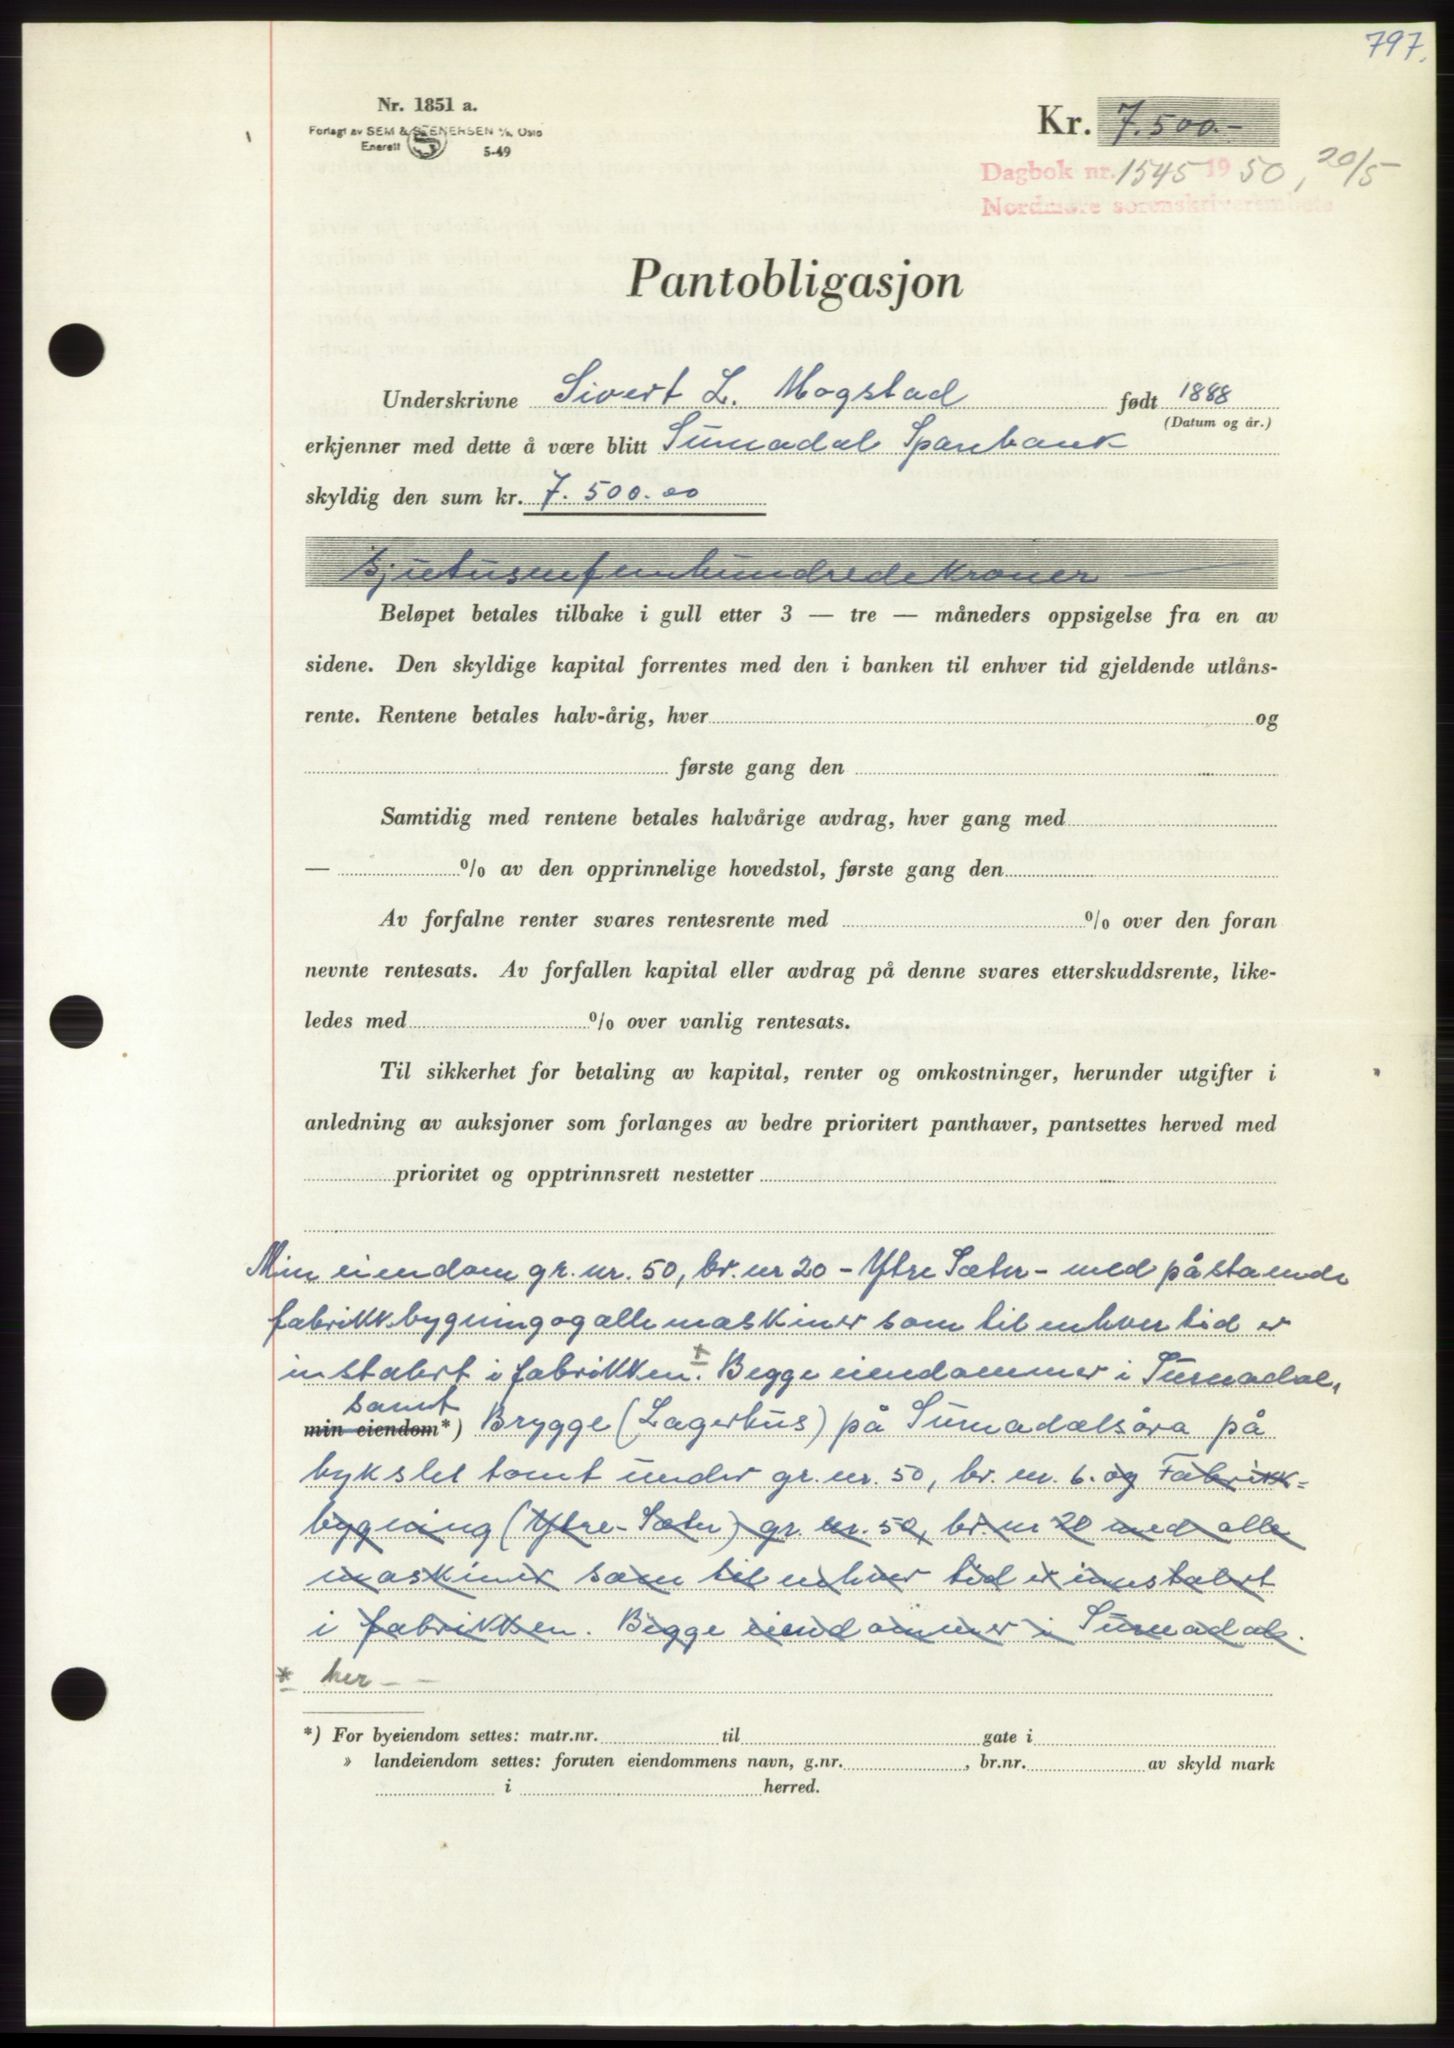 797.
Nr. 1851 a.
Forlagt av SEM & STENERSEN A/S, Oslo
Enerett 5-49
Kr. 7.500.-
Dagbok nr. 1545 1950, 20/5
Nordmøre sorenskriverembete
Pantobligasjon
Underskrivne Sivert L. Mogstad født 1888
(Datum og år.)
erkjenner med dette å være blitt Surnadal Sparebank
skyldig den sum kr. 7.500.00
Sjutusenfemhundredekroner
Beløpet betales tilbake i gull etter 3 — tre — måneders oppsigelse fra en av
sidene. Den skyldige kapital forrentes med den i banken til enhver tid gjeldende utlåns-
rente. Rentene betales halv-årig, hver og
første gang den
Samtidig med rentene betales halvårige avdrag, hver gang med
— % av den opprinnelige hovedstol, første gang den
Av forfalne renter svares rentesrente med % over den foran
nevnte rentesats. Av forfallen kapital eller avdrag på denne svares etterskuddsrente, like-
ledes med % over vanlig rentesats.
Til sikkerhet for betaling av kapital, renter og omkostninger, herunder utgifter i
anledning av auksjoner som forlanges av bedre prioritert panthaver, pantsettes herved med
prioritet og opptrinnsrett nestetter
Min eiendom gr. nr. 50, br. nr 20 - Ytre Sæter - med påstående
fabrikkbygning og alle maskiner som til enhver tid er
instalert i fabrikken. + Begge eiendommer i Surnadal,
samt
min eiendom*) Brygge (Lagerhus) på Surnadalsøra på
bykslet tomt under gr. nr. 50, br. nr. 6. og Fabrikk-
bygning (Ytre-Sæter) gr. nr. 50, br. nr 20 med alle
maskiner som til enhver tid er innstalert
i fabrikken. Begge eiendommer i Surnadal.
* her - -
*) For byeiendom settes: matr.nr. til gate i
» landeiendom settes: foruten eiendommens navn, g.nr. , br.nr. av skyld mark
i herred.